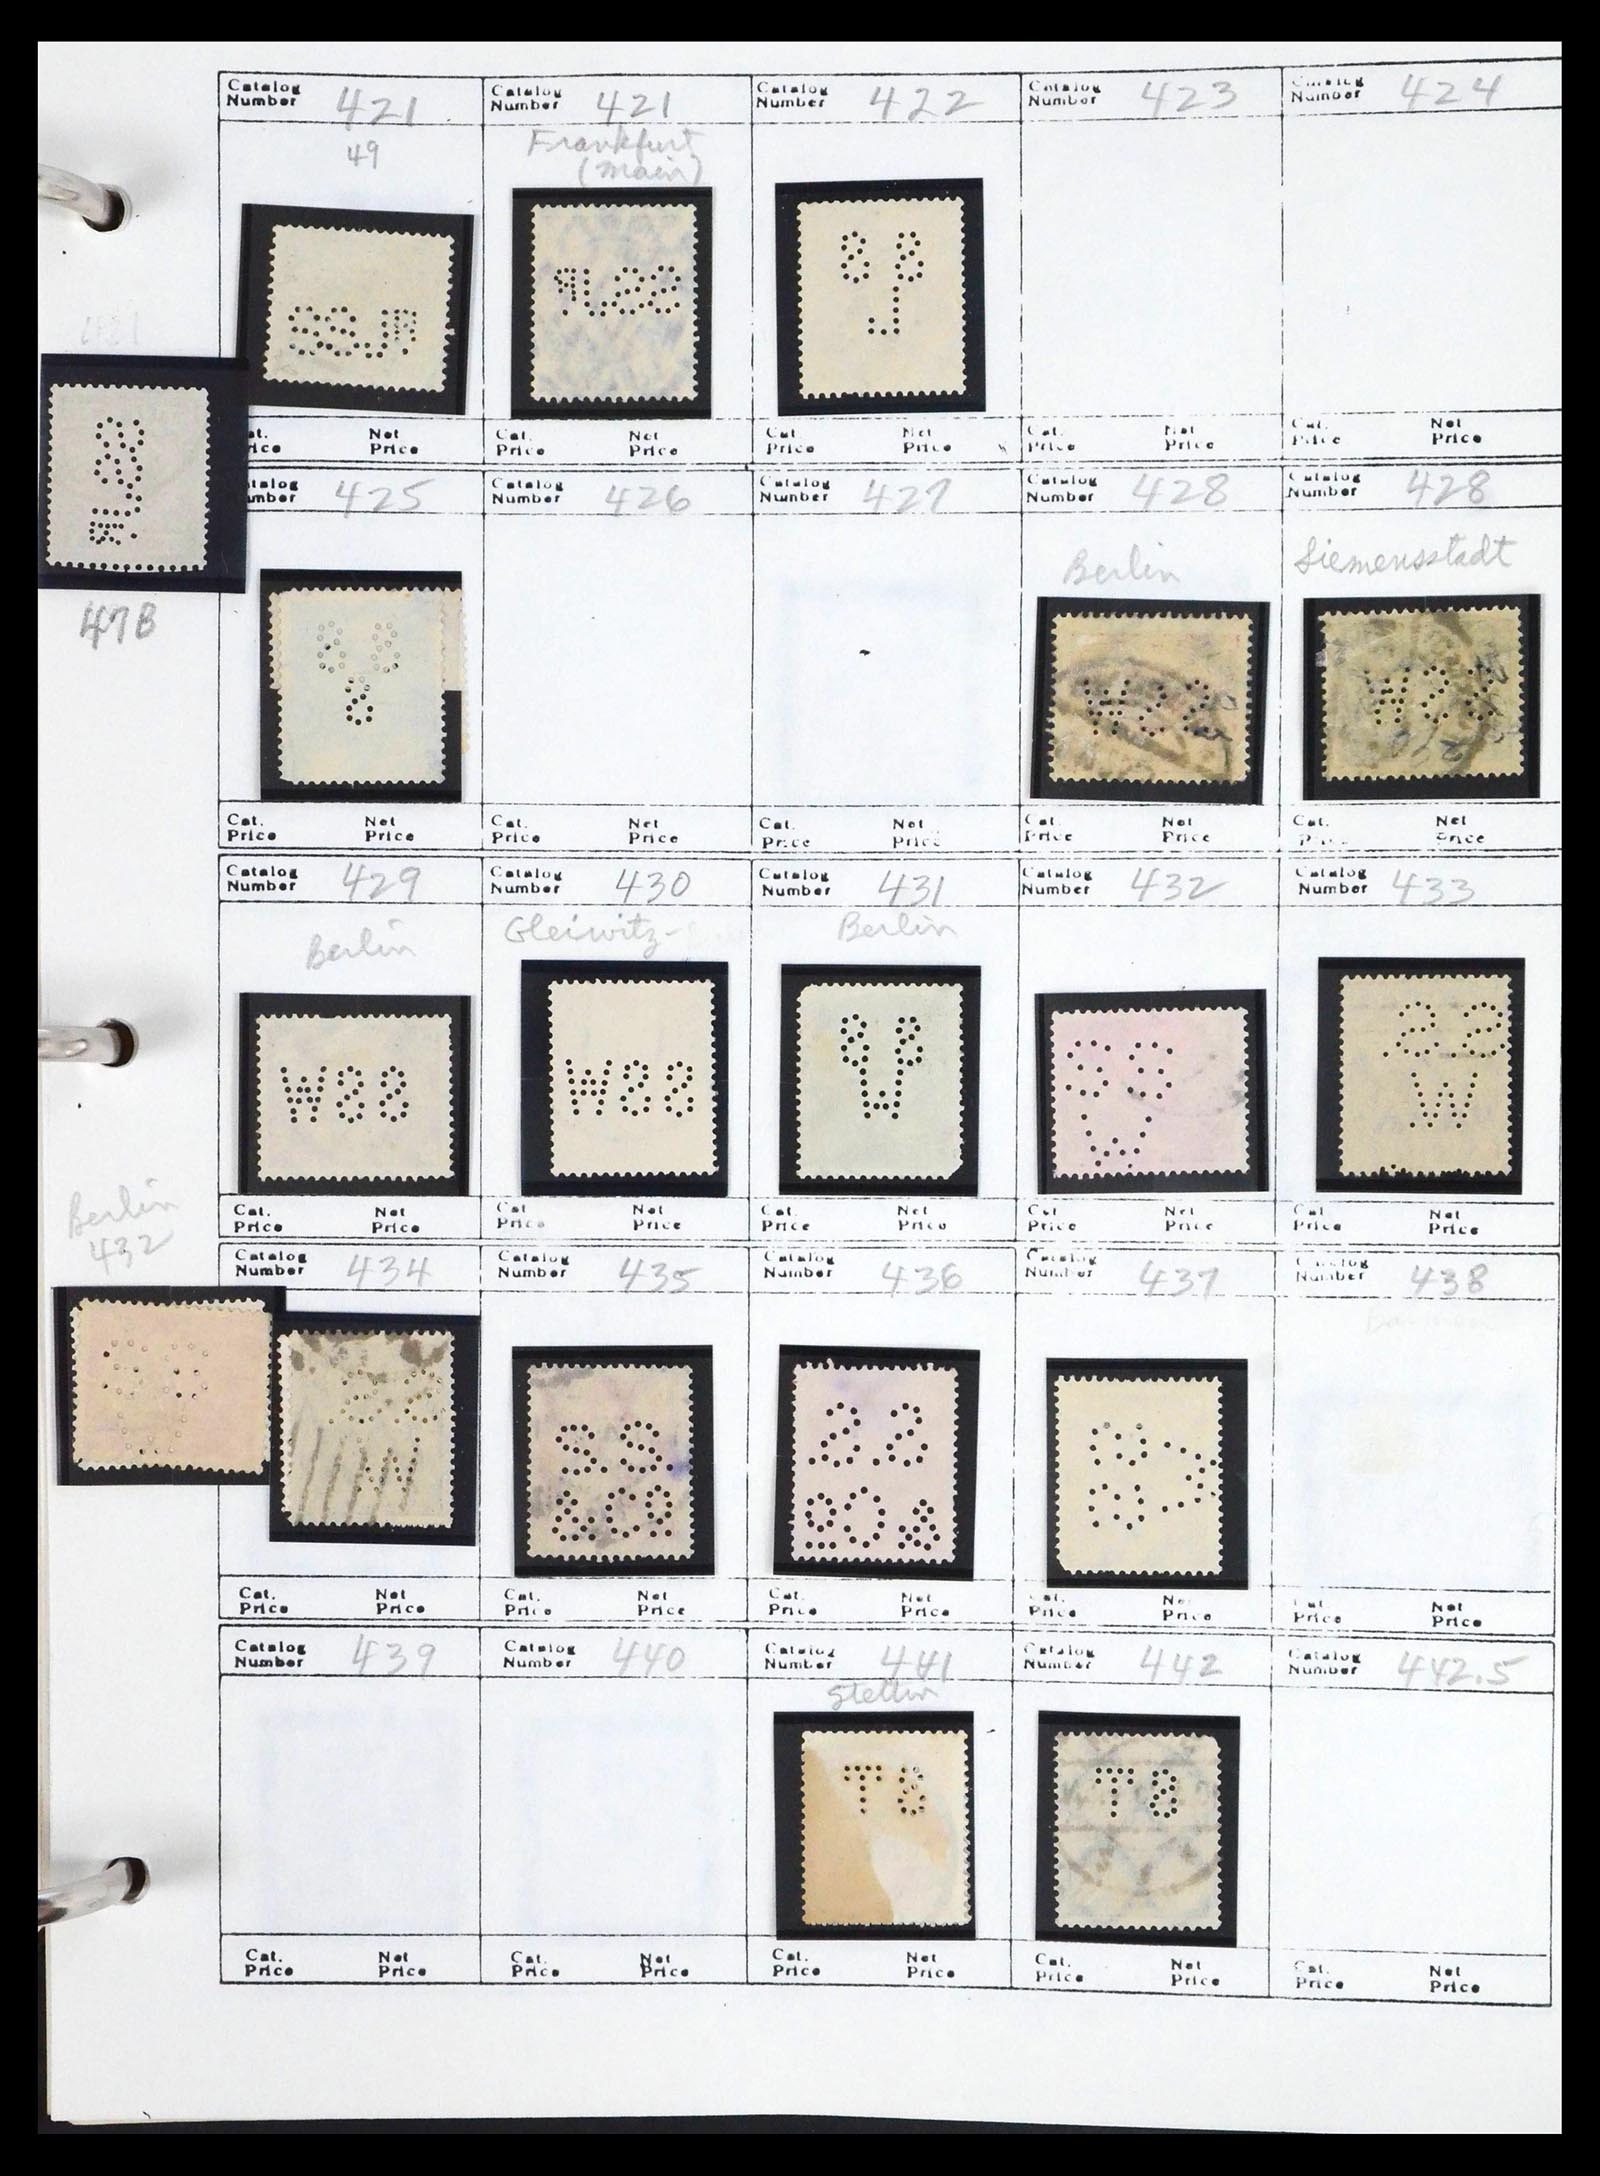 Catalog Number 421
Catalog Number 421
Catalog Number 422
Catalog Number 423
Catalog Number 424
49
Frankfurt
(Main)
Cat. Price Net Price
Cat. Price Net Price
Cat. Price Net Price
Cat. Price Net Price
421
47B
Catalog Number 425
Catalog Number 426
Catalog Number 427
Catalog Number 428
Catalog Number 428
Berlin
Siemensstadt
Cat. Price Net Price
Cat. Price Net Price
Cat. Price Net Price
Cat. Price Net Price
Cat. Net Price
Catalog Number 429
Catalog Number 430
Catalog Number 431
Catalog Number 432
Catalog Number 433
Berlin
Gleiwitz
Berlin
Cat. Price Net Price
Cat. Price Net Price
Cat. Price Net Price
Cat. Price Net Price
Cat. Price Net Price
Berlin
432
Catalog Number 434
Catalog Number 435
Catalog Number 436
Catalog Number 437
Catalog Number 438
Cat. Price Net Price
Cat. Price Net Price
Cat. Price Net Price
Cat. Price Net Price
Cat. Price Net Price
Catalog Number 439
Catalog Number 440
Catalog Number 441
Catalog Number 442
Catalog Number 442.5
Stettin
T8
T8
Cat. Price Net Price
Cat. Price Net Price
Cat. Price Net Price
Cat. Price Net Price
Cat. Price Net Price